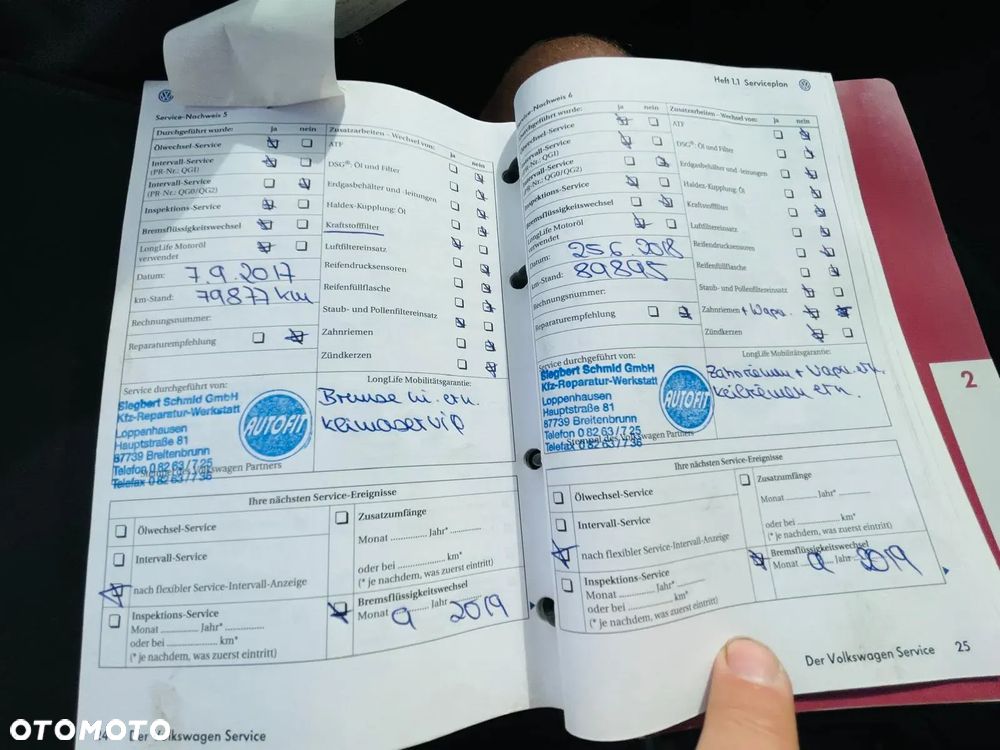 Service-Nachweis 5
Durchgeführt wurde: ja nein
Ölwechsel-Service
Intervall-Service
(PR-Nr.: QG1)
Intervall-Service
(PR-Nr.: QG0/QG2)
Inspektions-Service
Bremsflüssigkeitswechsel
LongLife Motoröl
verwendet
Datum: 7.9.2017
km-Stand: 79877 km
Rechnungsnummer:
Reparaturempfehlung
Zusatzarbeiten - Wechsel von: ja nein
ATF
DSG®: Öl und Filter
Erdgasbehälter und -leitungen
Haldex-Kupplung: Öl
Kraftstofffilter
Luftfiltereinsatz
Reifendrucksensoren
Reifenfüllflasche
Staub- und Pollenfiltereinsatz
Zahnriemen
Zündkerzen
Service durchgeführt von:
Siegbert Schmid GmbH
Kfz-Reparatur-Werkstatt
Loppenhausen
Hauptstraße 81
87739 Breitenbrunn
Telefon 0 82 63 / 7 25
Telefax 0 82 63 / 7 36
AUTOFIT
Stempel des Volkswagen Partners
LongLife Mobilitätsgarantie:
Bremse
Ihre nächsten Service-Ereignisse
Ölwechsel-Service
Intervall-Service
nach flexibler Service-Intervall-Anzeige
Inspektions-Service
Monat ............ Jahr* ............
oder bei ............ km*
(* je nachdem, was zuerst eintritt)
Zusatzumfänge
Monat ............ Jahr* ............
oder bei ............ km*
(* je nachdem, was zuerst eintritt)
Bremsflüssigkeitswechsel
Monat 9 Jahr 2019
Der Volkswagen Service
Heft 1.1 Serviceplan
Service-Nachweis 6
Durchgeführt wurde: ja nein
Ölwechsel-Service
Intervall-Service
(PR-Nr.: QG1)
Intervall-Service
(PR-Nr.: QG0/QG2)
Inspektions-Service
Bremsflüssigkeitswechsel
LongLife Motoröl
verwendet
Datum: 25.6.2018
km-Stand: 89895
Rechnungsnummer:
Reparaturempfehlung
Zusatzarbeiten - Wechsel von: ja nein
ATF
DSG®: Öl und Filter
Erdgasbehälter und -leitungen
Haldex-Kupplung: Öl
Kraftstofffilter
Luftfiltereinsatz
Reifendrucksensoren
Reifenfüllflasche
Staub- und Pollenfiltereinsatz
Zahnriemen + Wapu.
Zündkerzen
Service durchgeführt von:
Siegbert Schmid GmbH
Kfz-Reparatur-Werkstatt
Loppenhausen
Hauptstraße 81
87739 Breitenbrunn
Telefon 0 82 63 / 7 25
Telefax 0 82 63 / 7 36
AUTOFIT
Stempel des Volkswagen Partners
LongLife Mobilitätsgarantie:
Zahnriemen + Wapu ern.
Keilriemen ern.
Ihre nächsten Service-Ereignisse
Ölwechsel-Service
Intervall-Service
nach flexibler Service-Intervall-Anzeige
Inspektions-Service
Monat ............ Jahr* ............
oder bei ............ km*
(* je nachdem, was zuerst eintritt)
Zusatzumfänge
Monat ............ Jahr* ............
oder bei ............ km*
(* je nachdem, was zuerst eintritt)
Bremsflüssigkeitswechsel
Monat 9 Jahr 2019
Der Volkswagen Service 25
2
OTOMOTO